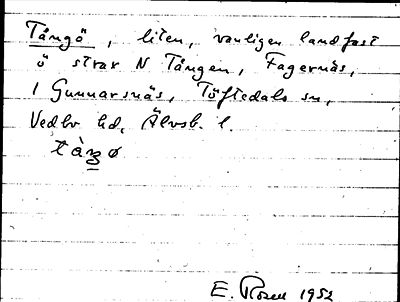 Tångö, liten, vanligen landfast
ö strax N Tången, Fagernäs,
1 Gunnarsnäs, Töftedals sn,
Vedbo hd, Älvsb. l.
tàŋø
E. Rosell 1952